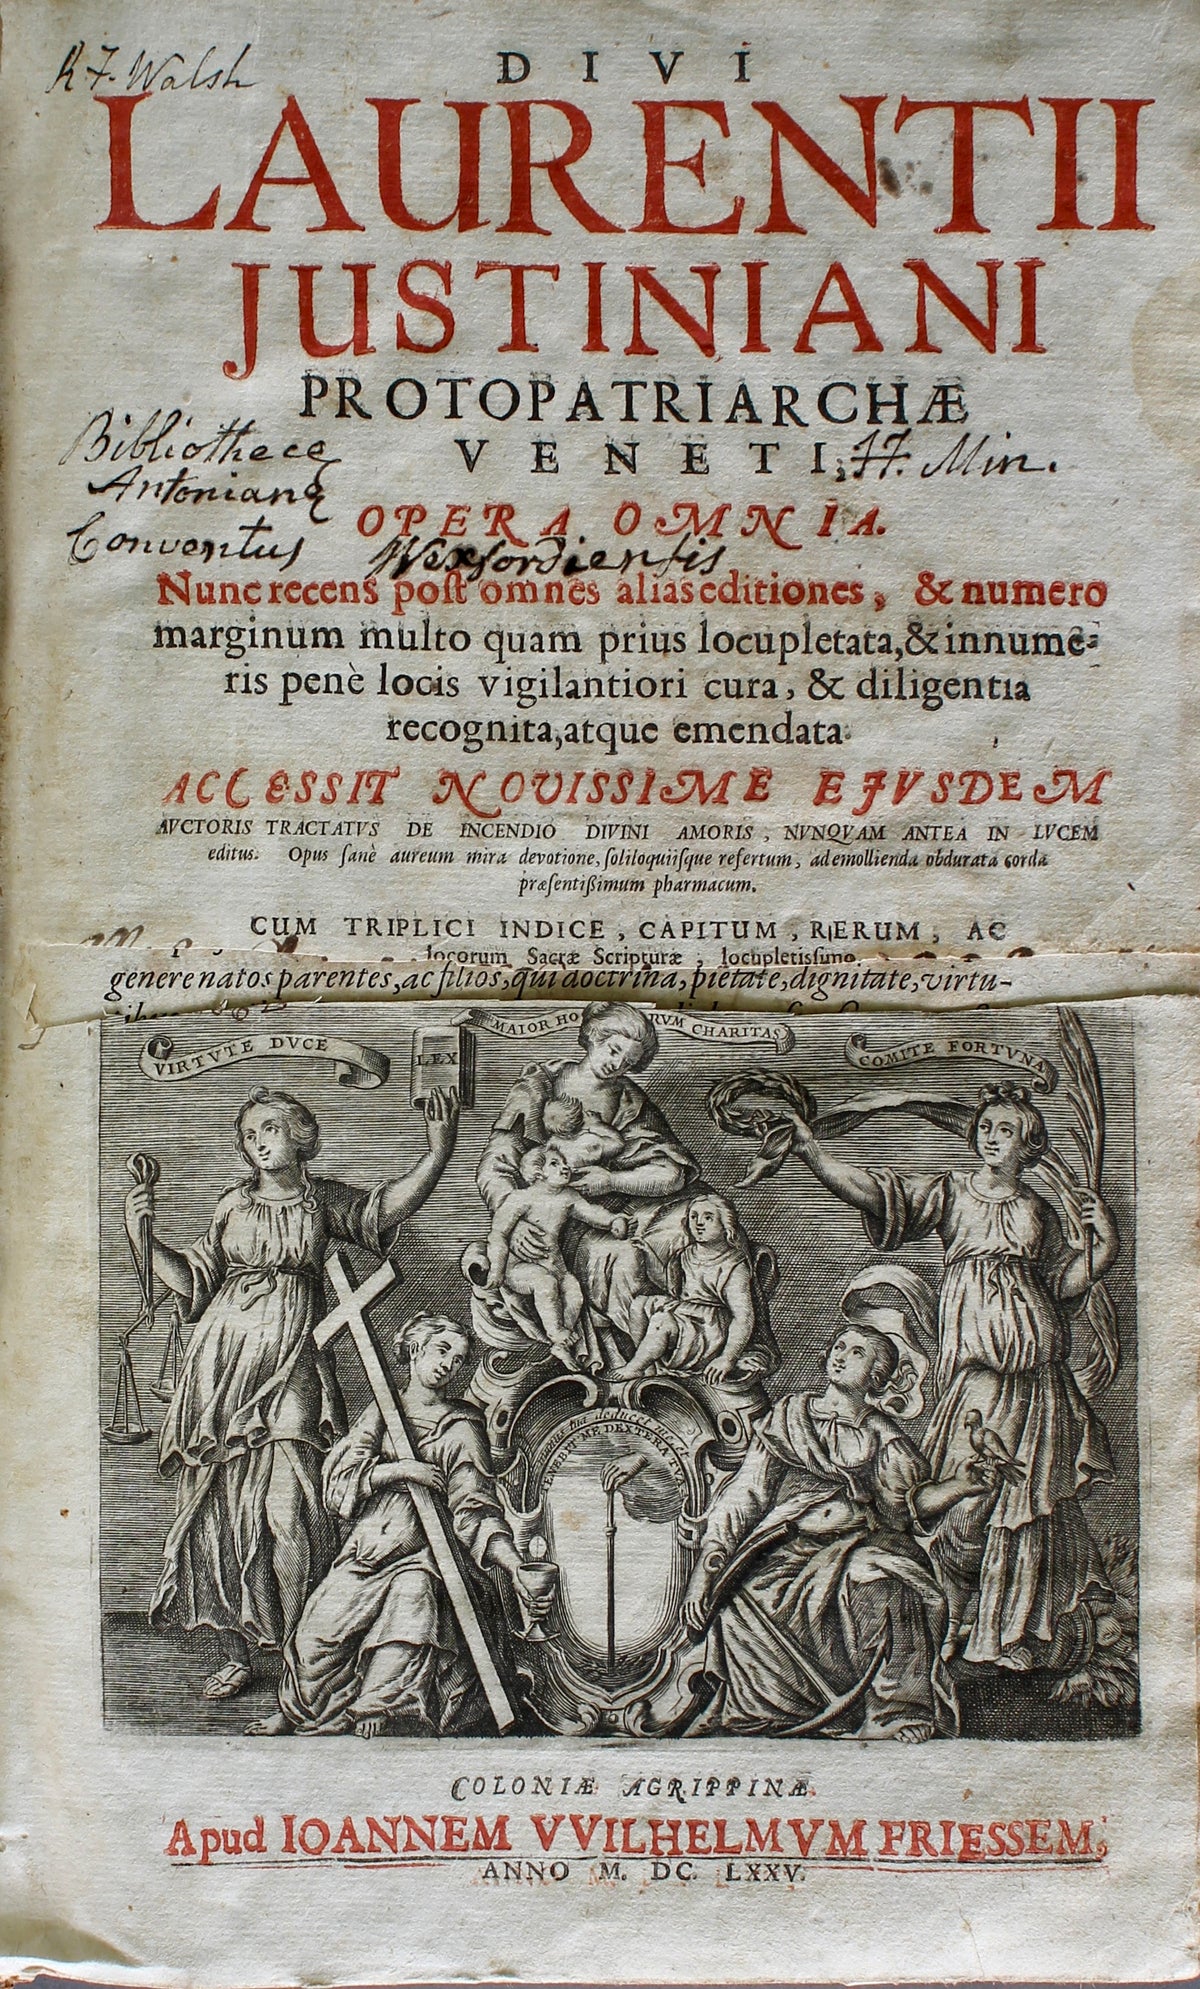 R. F. Walsh
DIVI
LAURENTII
JUSTINIANI
PROTOPATRIARCHÆ
VENETI,
Bibliothecę
Antonianę
Conventus Wexfordiensis
FF. Min.
OPERA OMNIA.
Nunc recens poſt omnes alias editiones, & numero
marginum multo quam prius locupletata, & innume-
ris penè locis vigilantiori cura, & diligentia
recognita, atque emendata.
ACCESSIT NOVISSIME EJVSDEM
AVCTORIS TRACTATVS DE INCENDIO DIVINI AMORIS, NVNQVAM ANTEA IN LVCEM
editus. Opus ſanè aureum mira devotione, ſoliloquiiſque refertum, ad emollienda obdurata corda
præſentißimum pharmacum.
CUM TRIPLICI INDICE, CAPITUM, RERUM, AC
locorum Sacræ Scripturæ, locupletiſſimo.
genere natos parentes, ac filios, qui doctrina, pietate, dignitate, virtu-
VIRTVTE DVCE
LEX
MAIOR HO RVM CHARITAS
COMITE FORTVNA
manus tua deducet me et
TENEBIT ME DEXTERA TVA
COLONIÆ AGRIPPINÆ.
Apud IOANNEM VVILHELMVM FRIESSEM,
ANNO M. DC. LXXV.